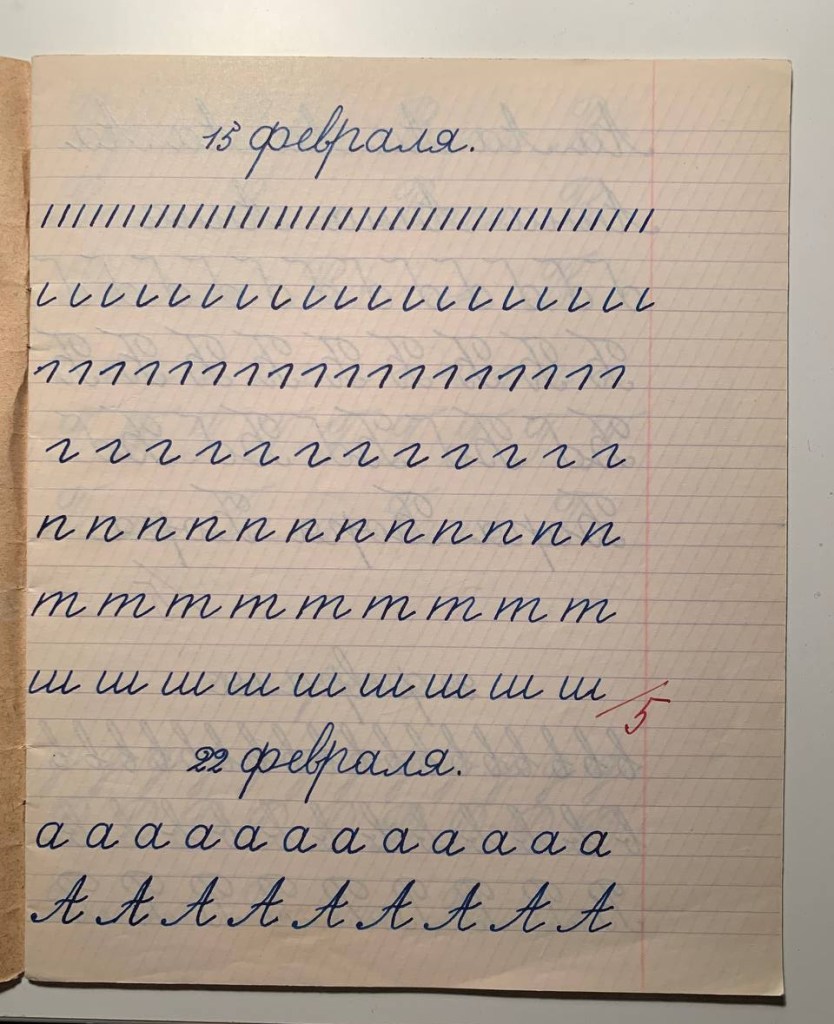 15 февраля.
г г г г г г г г г г г г
п п п п п п п п п п п п
т т т т т т т т т
ш ш ш ш ш ш ш ш ш
5
22 февраля.
а а а а а а а а а а а а
А А А А А А А А А